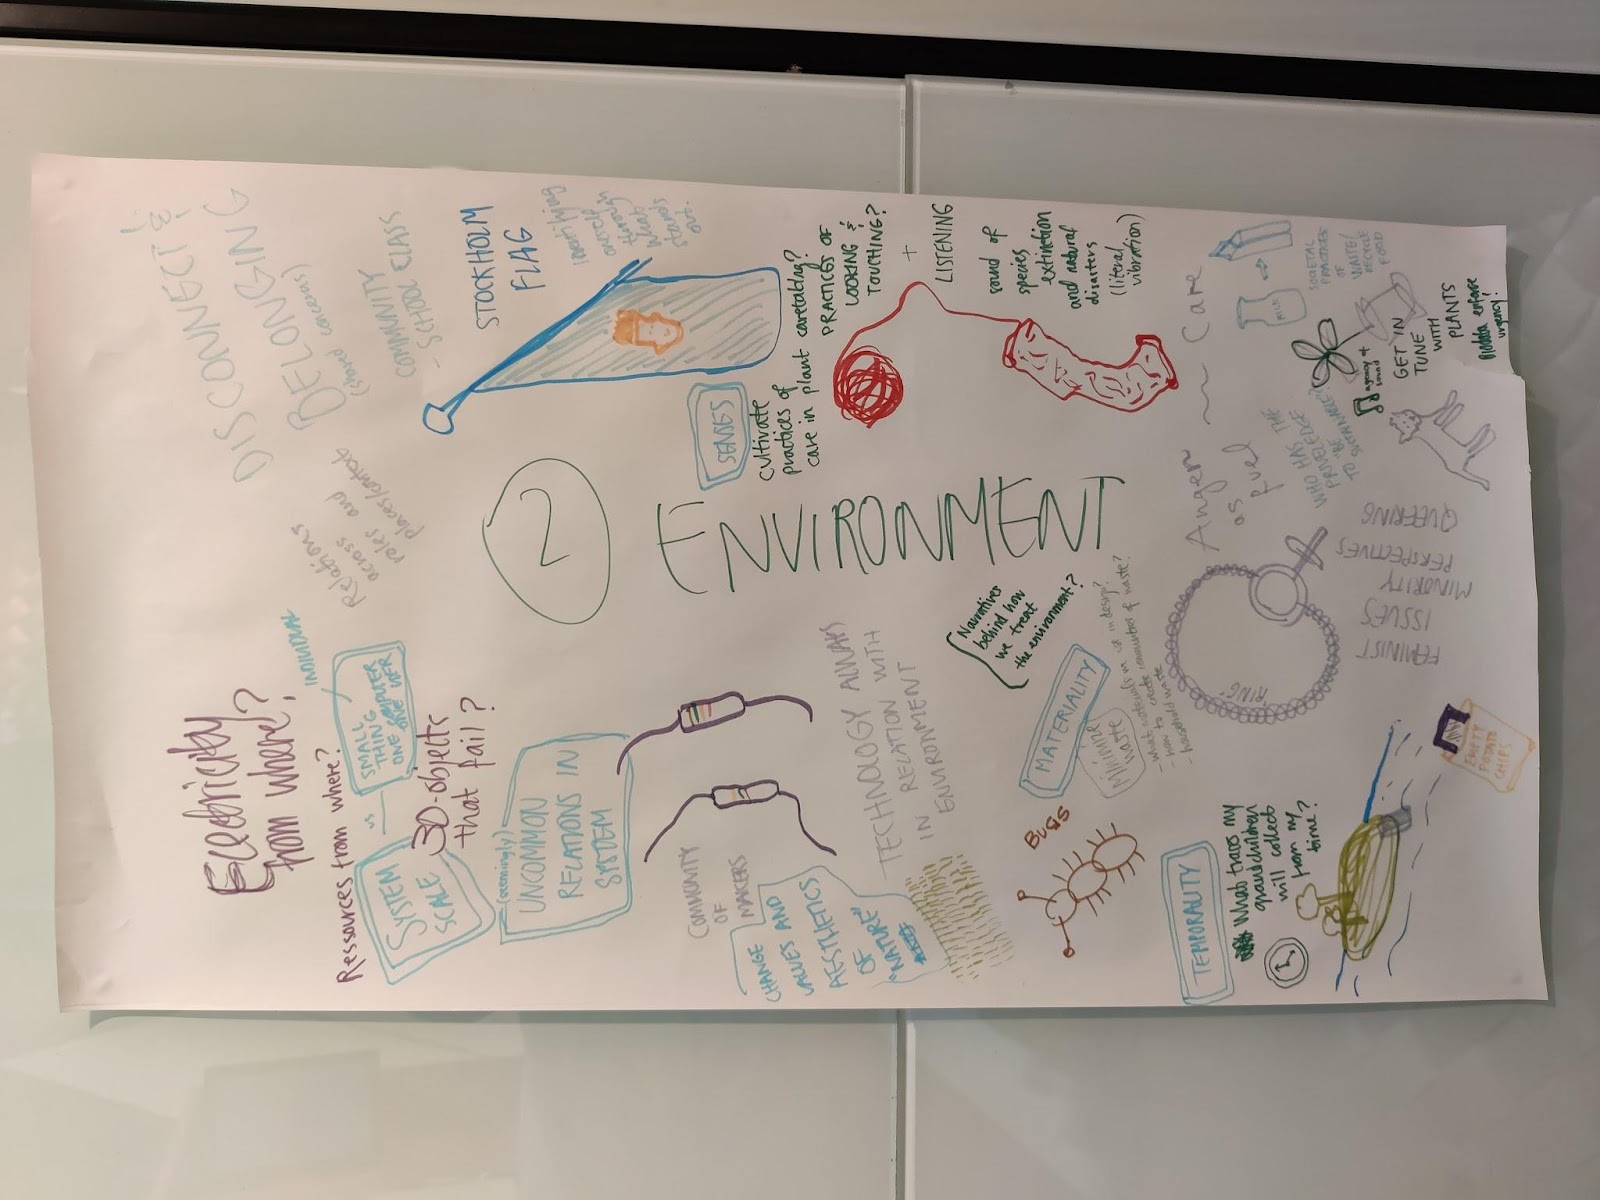 DISCONNECT &
BELONGING
(shared concerns)
COMMUNITY
- SCHOOL CLASS
STOCKHOLM
FLAG
identifying
oneself
through
what
stands
out.
Relations
across
roles and
places/contexts
Electricity
from where?
Ressources from where?
INDIVIDUAL
SYSTEM
SCALE
vs
SMALL
THING
ONE COMPUTER
ONE USER
3D-objects
that fail?
(seemingly)
UNCOMMON
RELATIONS IN
SYSTEM
2
ENVIRONMENT
SENSES
cultivate
practices of
care in plant caretaking?
PRACTICES OF
LOOKING &
TOUCHING?
+
LISTENING
sound of
species
extinction
and natural
disasters
(literal
vibration)
COMMUNITY
OF
MAKERS
CHANGE
VALUES AND
AESTHETICS
OF
"NATURE"
TECHNOLOGY ALWAYS
IN RELATION WITH
ENVIRONMENT
Narratives
behind how
we treat
the environment?
MATERIALITY
Minimize
waste
- what materials we use in design?
- how to create communities of waste?
- household waste
BUGS
Anger ~ Care
as
fuel
MILK
SOCIETAL
PRACTICES
OF
WASTE/
RECYCLE
FOOD
WHO HAS THE
PRIVELEDGE
TO "BE
SUSTAINABLE"?
agency of
sound
GET IN
TUNE
WITH
PLANTS
Biodata enforce
urgency!
"RING"
FEMINIST
ISSUES
MINORITY
PERSPECTIVES
QUEERING
TEMPORALITY
What traps my
grandchildren
will collect
from my
time?
EMPTY
POTATO
CHIPS